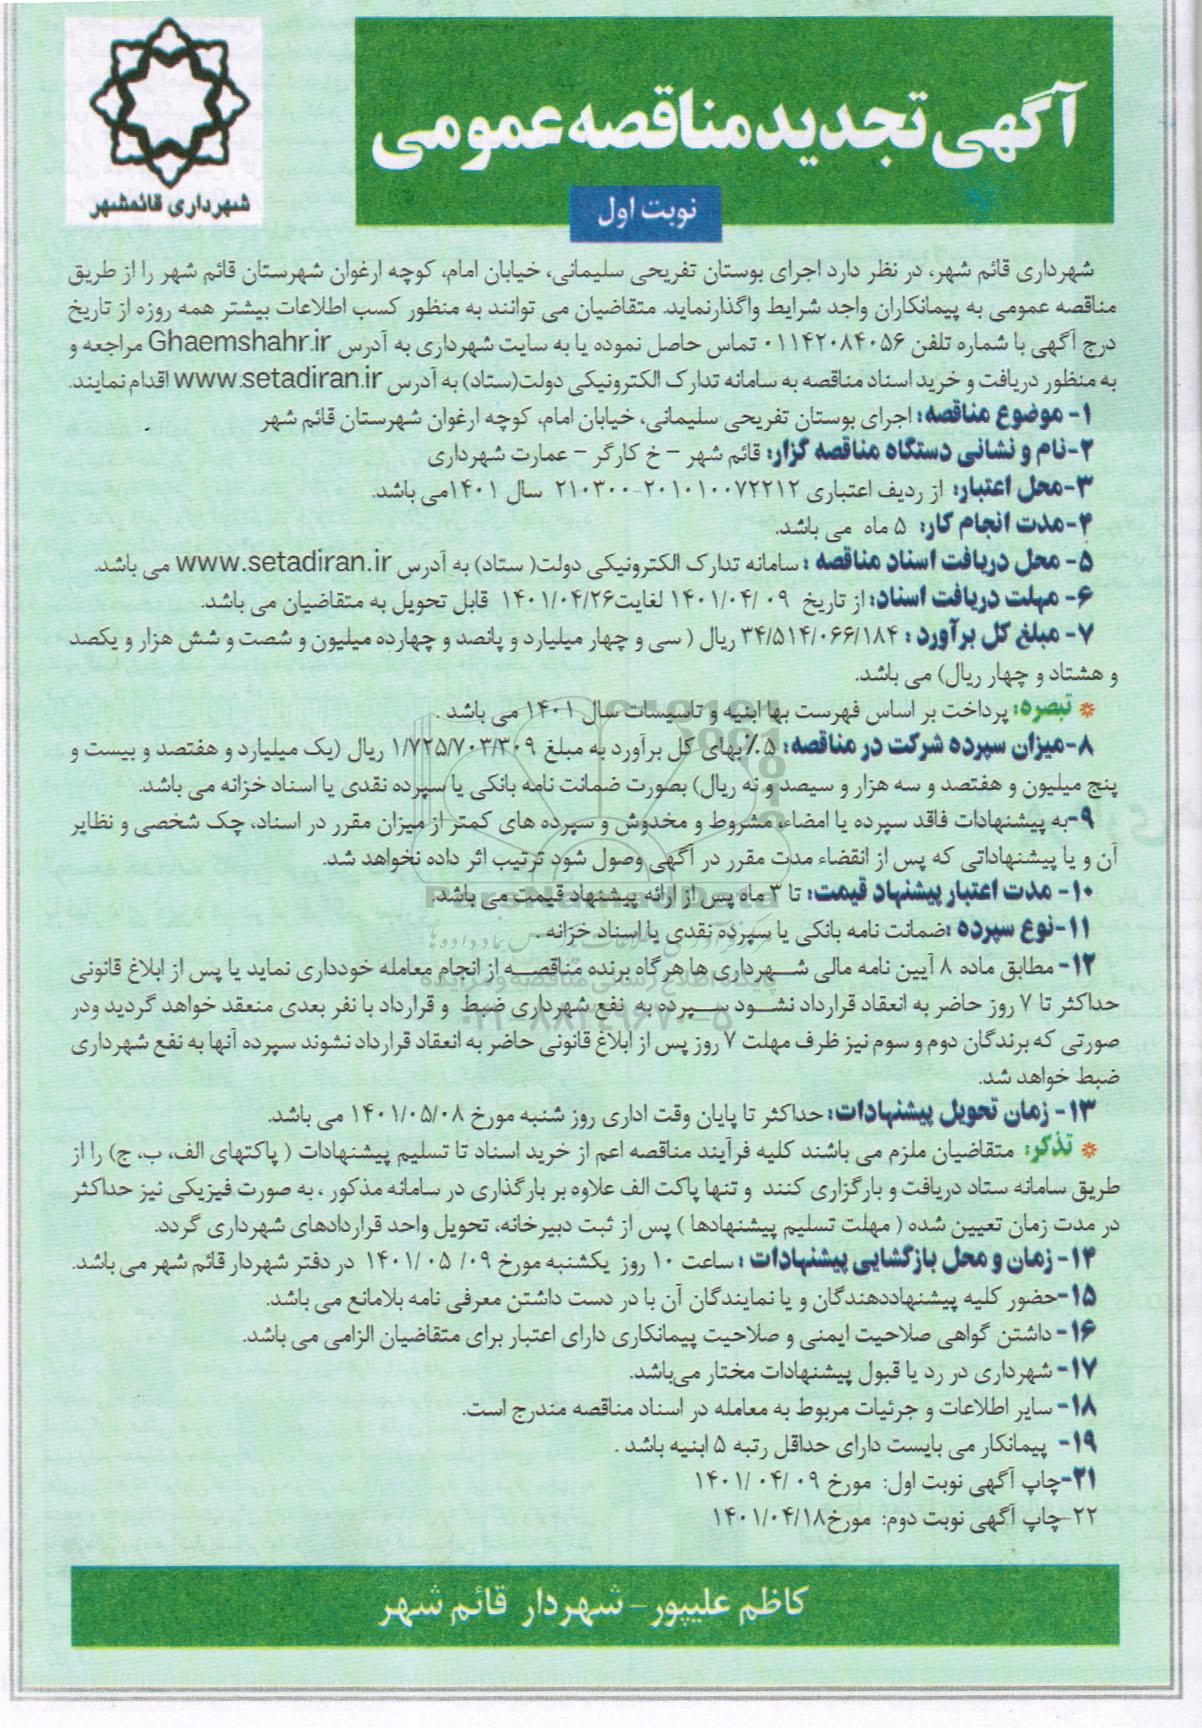 آگهی تجدید مناقصه عمومی
شهرداری قائمشهر
نوبت اول
شهرداری قائم شهر، در نظر دارد اجرای بوستان تفریحی سلیمانی، خیابان امام، کوچه ارغوان شهرستان قائم شهر را از طریق
مناقصه عمومی به پیمانکاران واجد شرایط واگذارنماید. متقاضیان می توانند به منظور کسب اطلاعات بیشتر همه روزه از تاریخ
درج آگهی با شماره تلفن ۰۱۱۴۲۰۸۴۰۵۶ تماس حاصل نموده یا به سایت شهرداری به آدرس Ghaemshahr.ir مراجعه و
به منظور دریافت و خرید اسناد مناقصه به سامانه تدارک الکترونیکی دولت(ستاد) به آدرس www.setadiran.ir اقدام نمایند.
۱- موضوع مناقصه: اجرای بوستان تفریحی سلیمانی، خیابان امام، کوچه ارغوان شهرستان قائم شهر
۲-نام و نشانی دستگاه مناقصه گزار: قائم شهر – خ کارگر – عمارت شهرداری
۳-محل اعتبار: از ردیف اعتباری ۲۰۱۰۱۰۰۷۲۲۱۲-۲۱۰۳۰۰ سال ۱۴۰۱می باشد.
۴-مدت انجام کار: ۵ ماه می باشد.
۵- محل دریافت اسناد مناقصه : سامانه تدارک الکترونیکی دولت( ستاد) به آدرس www.setadiran.ir می باشد.
۶- مهلت دریافت اسناد: از تاریخ ۰۹ /۱۴۰۱/۰۴ لغایت۱۴۰۱/۰۴/۲۶ قابل تحویل به متقاضیان می باشد.
۷- مبلغ کل برآورد : ۳۴/۵۱۴/۰۶۶/۱۸۴ ریال ( سی و چهار میلیارد و پانصد و چهارده میلیون و شصت و شش هزار و یکصد
و هشتاد و چهار ریال) می باشد.
تبصره: پرداخت بر اساس فهرست بها ابنیه و تاسیسات سال ۱۴۰۱ می باشد .
۸-میزان سپرده شرکت در مناقصه: ۵٪ بهای کل برآورد به مبلغ ۱/۷۲۵/۷۰۳/۳۰۹ ریال (یک میلیارد و هفتصد و بیست و
پنج میلیون و هفتصد و سه هزار و سیصد و نه ریال) بصورت ضمانت نامه بانکی یا سپرده نقدی یا اسناد خزانه می باشد.
۹-به پیشنهادات فاقد سپرده یا امضاء، مشروط و مخدوش و سپرده های کمتر از میزان مقرر در اسناد، چک شخصی و نظایر
آن و یا پیشنهاداتی که پس از انقضاء مدت مقرر در آگهی وصول شود ترتیب اثر داده نخواهد شد.
۱۰- مدت اعتبار پیشنهاد قیمت: تا ۳ ماه پس از ارائه پیشنهاد قیمت می باشد.
ParsNamadData
۱۱-نوع سپرده :ضمانت نامه بانکی یا سپرده نقدی یا اسناد خزانه .
۱۲- مطابق ماده ۸ آیین نامه مالی شهرداری ها هرگاه برنده مناقصه از انجام معامله خودداری نماید یا پس از ابلاغ قانونی
پایگاه اطلاع رسانی مناقصه و مزایده
حداکثر تا ۷ روز حاضر به انعقاد قرارداد نشود سپرده به نفع شهرداری ضبط و قرارداد با نفر بعدی منعقد خواهد گردید ودر
صورتی که برندگان دوم و سوم نیز ظرف مهلت ۷ روز پس از ابلاغ قانونی حاضر به انعقاد قرارداد نشوند سپرده آنها به نفع شهرداری
ضبط خواهد شد.
۱۳- زمان تحویل پیشنهادات: حداکثر تا پایان وقت اداری روز شنبه مورخ ۱۴۰۱/۰۵/۰۸ می باشد.
تذکر: متقاضیان ملزم می باشند کلیه فرآیند مناقصه اعم از خرید اسناد تا تسلیم پیشنهادات ( پاکتهای الف، ب، ج) را از
طریق سامانه ستاد دریافت و بارگزاری کنند و تنها پاکت الف علاوه بر بارگذاری در سامانه مذکور ، به صورت فیزیکی نیز حداکثر
در مدت زمان تعیین شده ( مهلت تسلیم پیشنهادها ) پس از ثبت دبیرخانه، تحویل واحد قراردادهای شهرداری گردد.
۱۴- زمان و محل بازگشایی پیشنهادات : ساعت ۱۰ روز یکشنبه مورخ ۰۹/ ۰۵ /۱۴۰۱ در دفتر شهردار قائم شهر می باشد.
۱۵-حضور کلیه پیشنهاددهندگان و یا نمایندگان آن با در دست داشتن معرفی نامه بلامانع می باشد.
۱۶- داشتن گواهی صلاحیت ایمنی و صلاحیت پیمانکاری دارای اعتبار برای متقاضیان الزامی می باشد.
۱۷- شهرداری در رد یا قبول پیشنهادات مختار می‌باشد.
۱۸- سایر اطلاعات و جرئیات مربوط به معامله در اسناد مناقصه مندرج است.
۱۹- پیمانکار می بایست دارای حداقل رتبه ۵ ابنیه باشد .
۲۱-چاپ آگهی نوبت اول: مورخ ۰۹ /۰۴ /۱۴۰۱
۲۲-چاپ آگهی نوبت دوم: مورخ۱۴۰۱/۰۴/۱۸
کاظم علیپور – شهردار قائم شهر